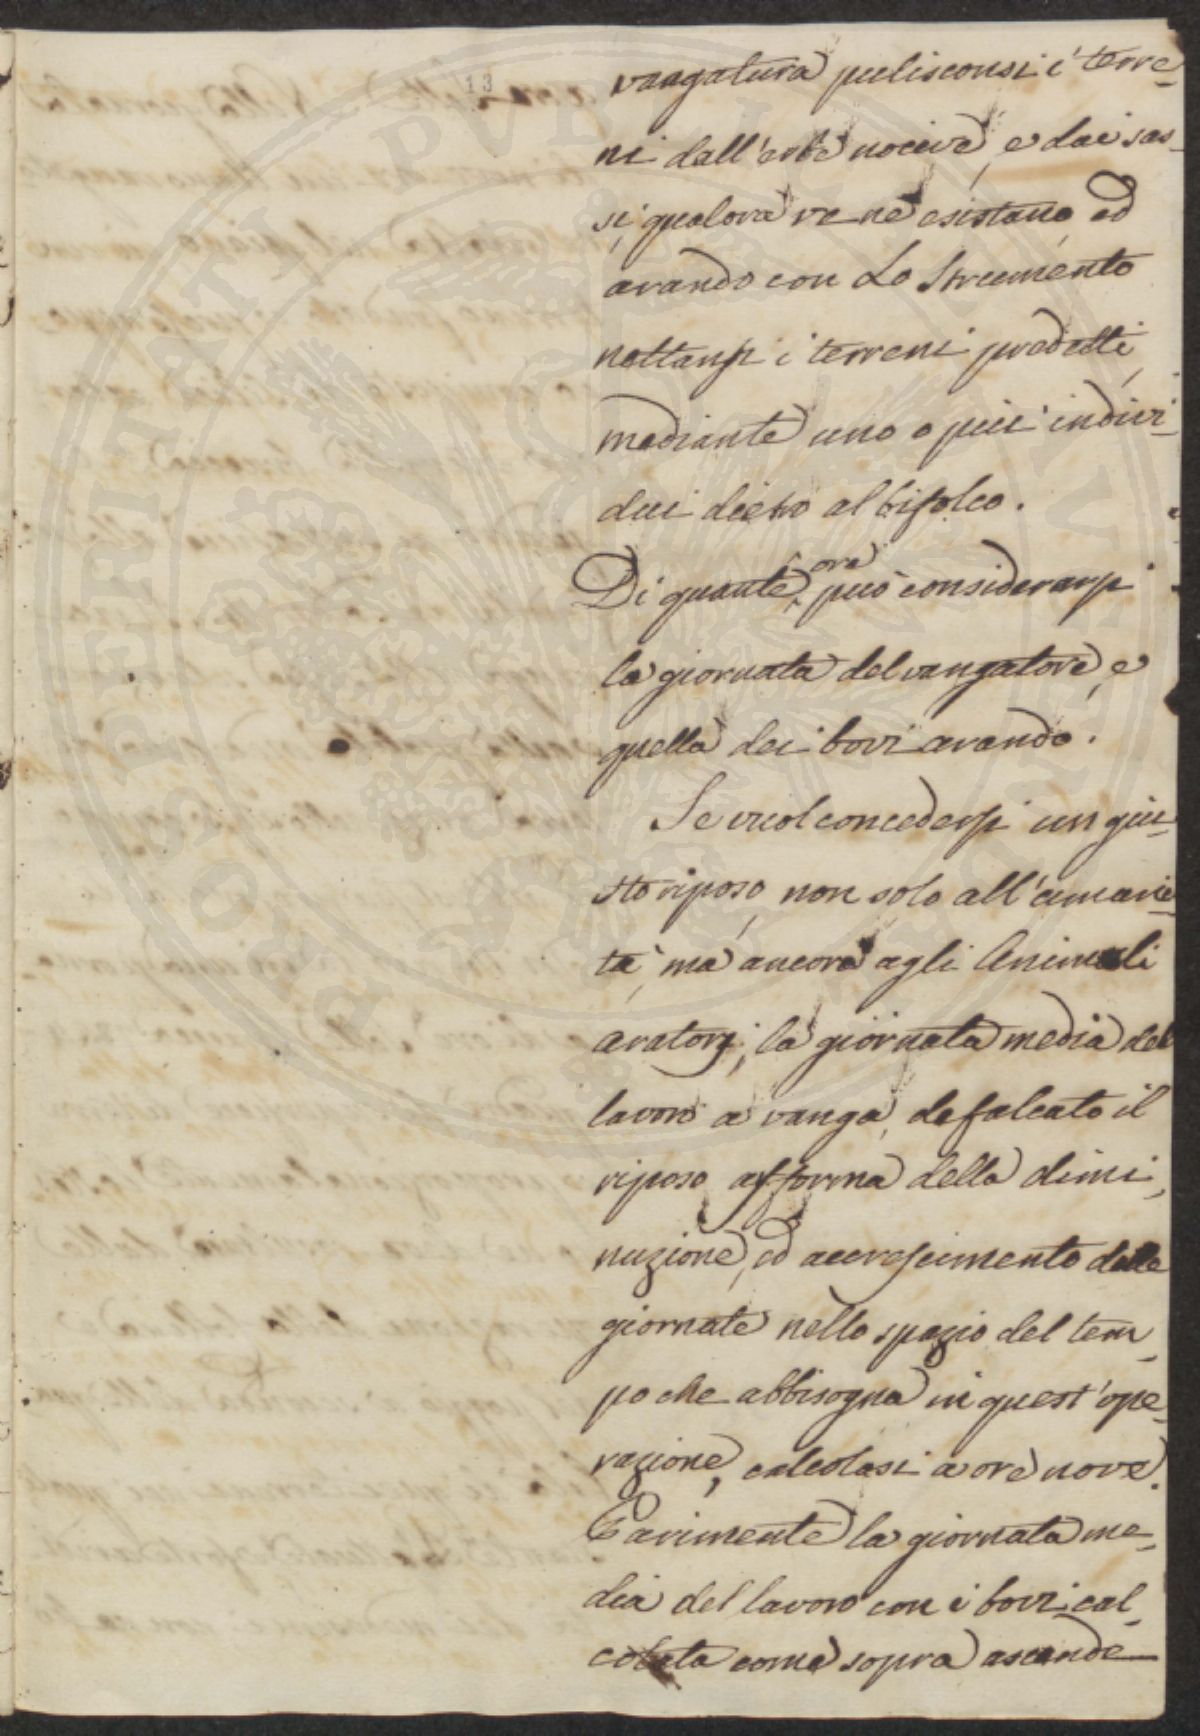 13
vangatura pulisconsi i terre-
ni dall'erbe nocive, e dai sas-
si, qualora ve ne esistano, ed
arando con Lo Strumento
nettansi i terreni predetti,
mediante uno o piu' indivi-
dui dietro al bifolco.
Di quante ore può considerarsi
la giornata del vangatore, e
quella dei bovi arando.
Se vuol concedersi un giu-
sto riposo, non solo all'umani-
tà, ma ancora agli Animali
aratorj, la giornata media del
lavoro a vanga, defalcato il
riposo afforma della dimi-
nuzione, ed accrescimento delle
giornate nello spazio del tem-
po che abbisogna in quest'ope-
razione, calcolasi a ore nove.
Parimente la giornata me-
dia del lavoro con i bovi cal-
colata come sopra ascende
PROSPERITATI PVBLICAE